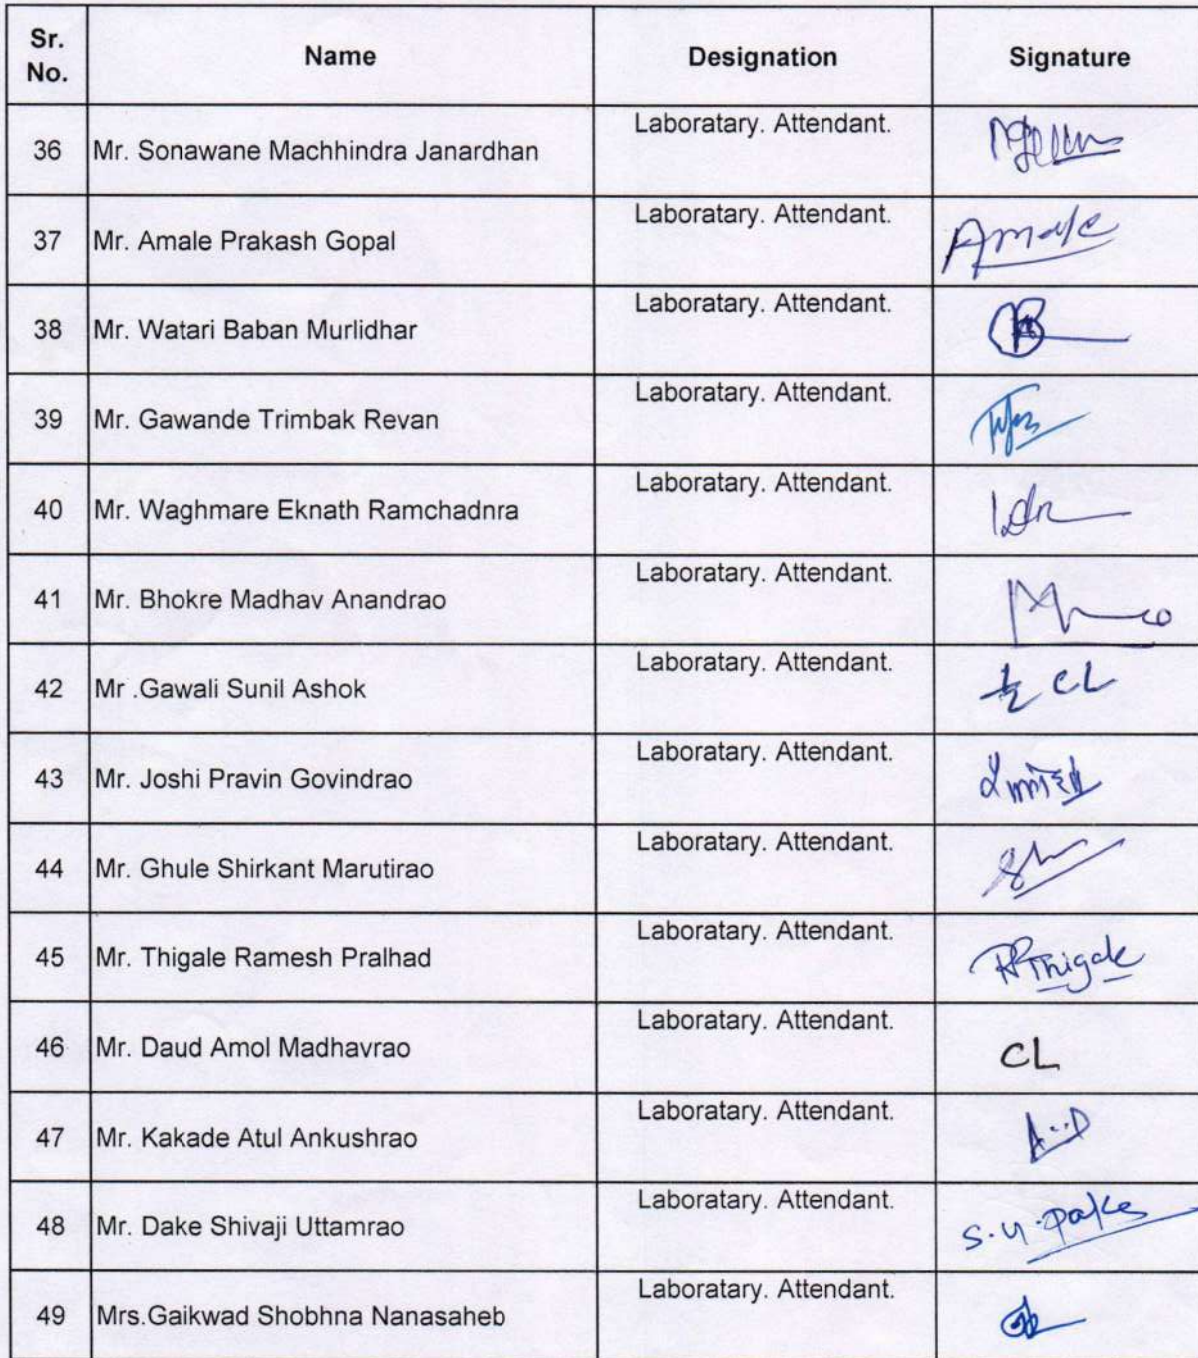 Sr. No. Name Designation Signature
36 Mr. Sonawane Machhindra Janardhan Laboratary. Attendant.
37 Mr. Amale Prakash Gopal Laboratary. Attendant. Amale
38 Mr. Watari Baban Murlidhar Laboratary. Attendant.
39 Mr. Gawande Trimbak Revan Laboratary. Attendant.
40 Mr. Waghmare Eknath Ramchadnra Laboratary. Attendant.
41 Mr. Bhokre Madhav Anandrao Laboratary. Attendant.
42 Mr .Gawali Sunil Ashok Laboratary. Attendant. ½ CL
43 Mr. Joshi Pravin Govindrao Laboratary. Attendant.
44 Mr. Ghule Shirkant Marutirao Laboratary. Attendant.
45 Mr. Thigale Ramesh Pralhad Laboratary. Attendant. RPThigale
46 Mr. Daud Amol Madhavrao Laboratary. Attendant. CL
47 Mr. Kakade Atul Ankushrao Laboratary. Attendant.
48 Mr. Dake Shivaji Uttamrao Laboratary. Attendant. S.U.Dake
49 Mrs.Gaikwad Shobhna Nanasaheb Laboratary. Attendant.